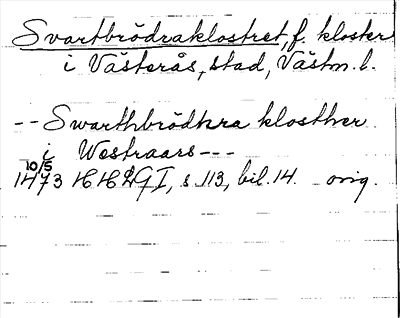 Svartbrödraklostret, f. kloster
i Västerås, stad, Västm. l.
-- Swarthbrödhra klosther
i Westraars ---
10/5
1473 HH2GI, s. 113, bil. 14. orig.